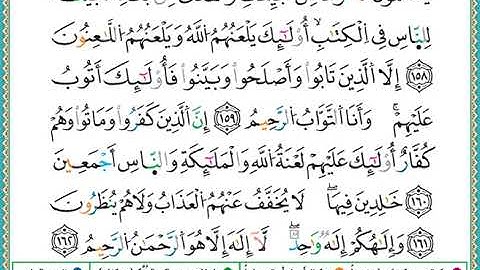 لِلنَّاسِ فِي اِ۬لْكِتَٰبِ أُوْلَٰٓئِكَ يَلْعَنُهُمُ اُ۬للَّهُ وَيَلْعَنُهُمُ اُ۬للَّٰعِنُونَ
١٥٨ إِلَّا اَ۬لَّذِينَ تَابُواْ وَأَصْلَحُواْ وَبَيَّنُواْ فَأُوْلَٰٓئِكَ أَتُوبُ
عَلَيْهِمْ وَأَنَا اَ۬لتَّوَّابُ اُ۬لرَّحِيمُ ١٥٩ إِنَّ اَ۬لَّذِينَ كَفَرُواْ وَمَاتُواْ وَهُمْ
كُفَّارٌ أُوْلَٰٓئِكَ عَلَيْهِمْ لَعْنَةُ اُ۬للَّهِ وَالْمَلَٰٓئِكَةِ وَالنَّاسِ أَجْمَعِينَ
١٦٠ خَٰلِدِينَ فِيهَا لَا يُخَفَّفُ عَنْهُمُ اُ۬لْعَذَابُ وَلَا هُمْ يُنظَرُونَ
١٦١ وَإِلَٰهُكُمْ إِلَٰهٌ وَٰحِدٌ لَّآ إِلَٰهَ إِلَّا هُوَ اَ۬لرَّحْمَٰنُ اُ۬لرَّحِيمُ ١٦٢